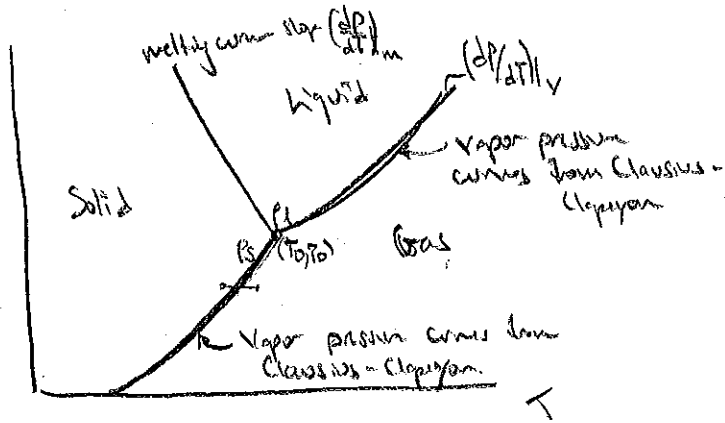 melting curve slope (dP/dT)m
Liquid
(dP/dT)|v
vapor pressure
curves from Clausius-
Clapeyron
Solid
Ps
(T0,P0)
Gas
Vapor pressure curves from
Clausius-Clapeyron.
T